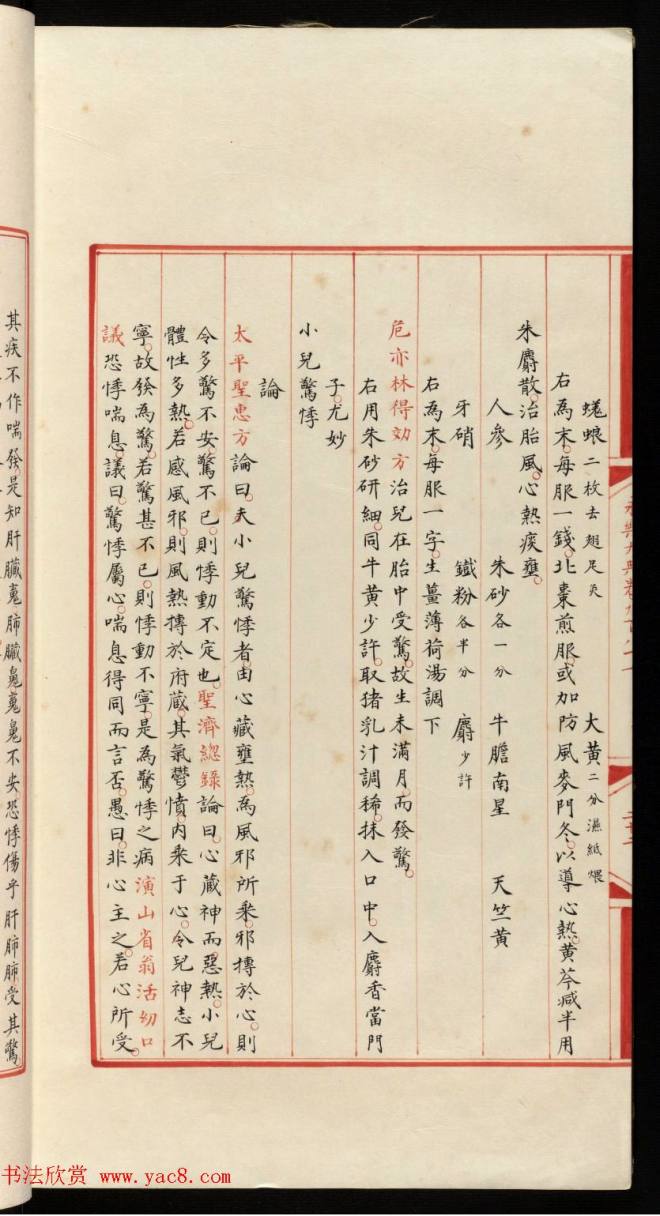 蜣蜋二枚去翅足炙 大黃二分濕紙煨
右為末。每服一錢。北棗煎服。或加防風麥門冬。以導心熱。黃芩減半用
朱麝散。治胎風。心熱痰壅。
人參 朱砂各一分 牛膽南星 天竺黃
牙硝 鐵粉各半分 麝少許
右為末。每服一字。生薑薄荷湯調下
危亦林得効方治兒在胎中受驚。故生未滿月。而發驚。
右用朱砂研細。同牛黃少許。取猪乳汁調稀。抹入口中。入麝香當門
子。尤妙
小兒驚悸
論
太平聖惠方論曰。夫小兒驚悸者。由心藏壅熱。為風邪所乘。邪搏於心。則
令多驚不安。驚不已。則悸動不定也。聖濟總錄論曰。心藏神而惡熱。小兒
體性多熱。若感風邪。則風熱搏於府藏。其氣鬱憤。內乘于心。令兒神志不
寧。故發為驚。若驚甚不已。則悸動不寧。是為驚悸之病演山省翁活幼口
議恐悸喘息。議曰。驚悸屬心。喘息得同而言否。愚曰。非心主之。若心所受。
其疾不作喘發。是知肝臟魂肺臟魄。魂魄不安恐悸傷乎肝肺。肺受其驚
书法欣赏 www.yac8.com